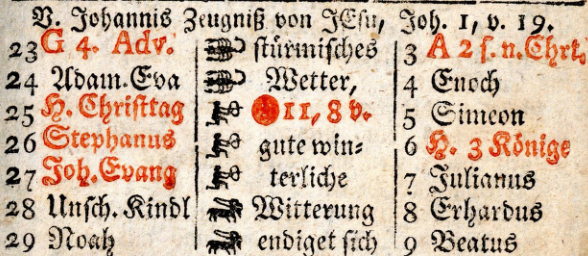 V. Johannis Zeugniß von JEsu, Joh. 1, v. 19.
23 G 4. Adv. stürmisches 3 A 2 s. n. Chrt.
24 Adam. Eva Wetter, 4 Enoch
25 H. Christtag 11, 8 v. 5 Simeon
26 Stephanus gute win= 6 H. 3 Könige
27 Joh. Evang terliche 7 Julianus
28 Unsch. Kindl Witterung 8 Erhardus
29 Noah endiget sich 9 Beatus